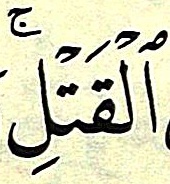 ٱلْقَتْلِ ۚ